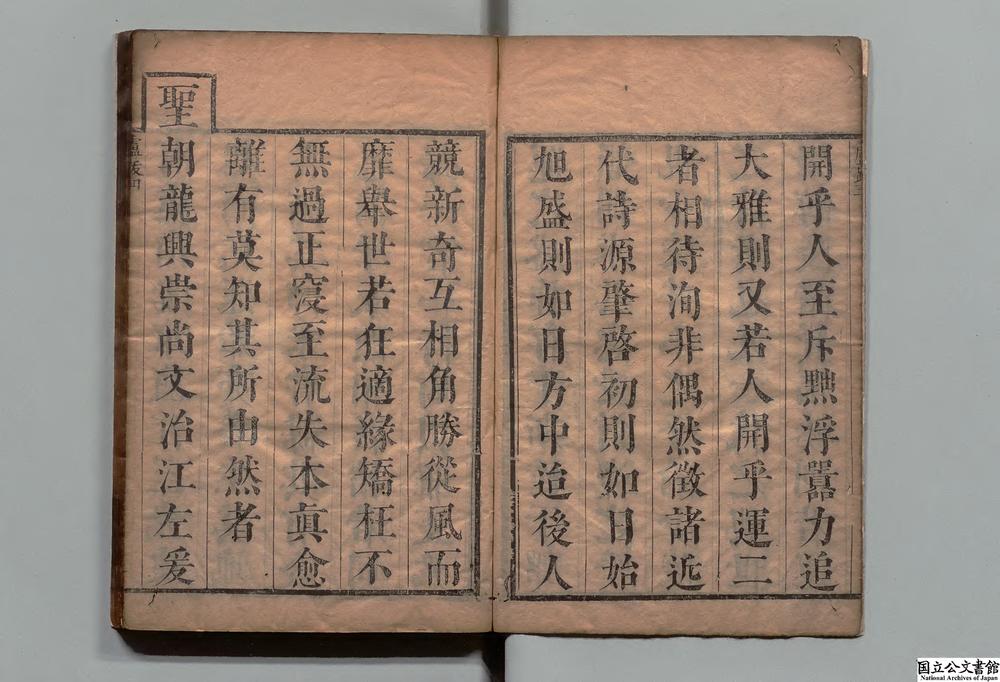 開乎人至斥黜浮囂力追
大雅則又若人開乎運二
者相待洵非偶然徵諸近
代詩源肇啓初則如日始
旭盛則如日方中迨後人
競新奇互相角勝從風而
靡舉世若狂適緣矯枉不
無過正寖至流失本眞愈
離有莫知其所由然者
聖朝龍興崇尚文治江左爰
国立公文書館
National Archives of Japan